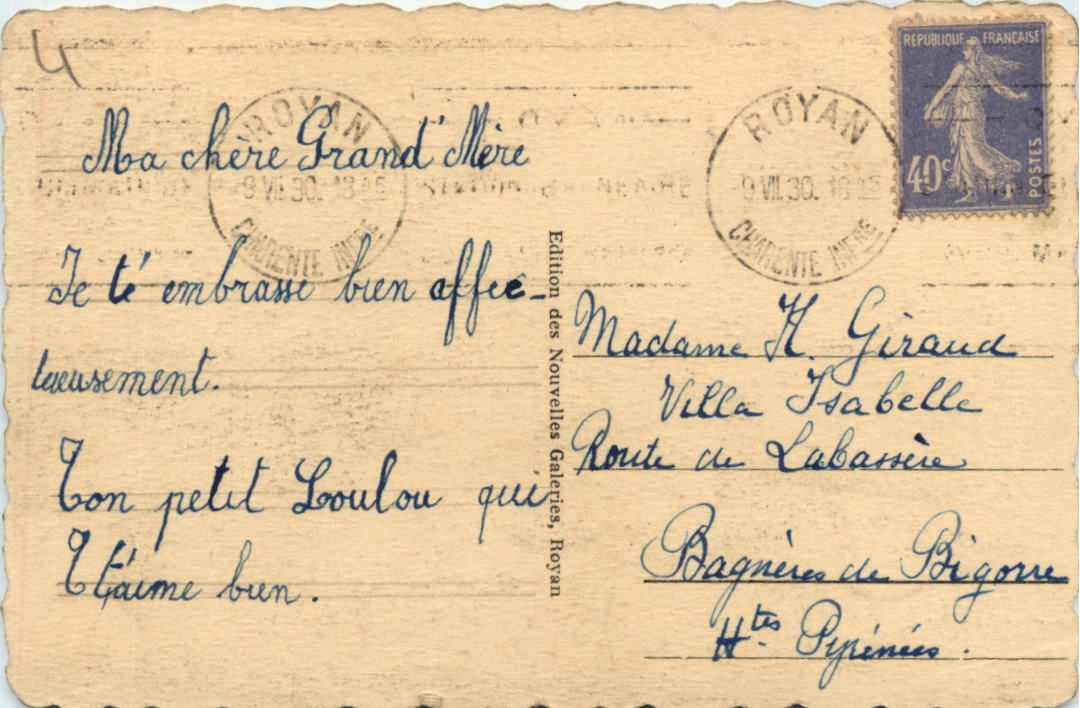 4
Ma chère Grand'Mère
Je t'é embrasse bien affec-
tueusement.
Ton petit Loulou qui
T t'aime bien.
Edition des Nouvelles Galeries, Royan
REPUBLIQUE FRANÇAISE
40c
POSTES
ROYAN
9 VII.30. 18 45
CHARENTE INFRE
STATION BALNEAIRE
ROYAN
9 VII.30. 18 45
CHARENTE INFRE
Madame H. Giraud
Villa Isabelle
Route de Labassère
Bagnères de Bigorre
Htes Pyrénées.